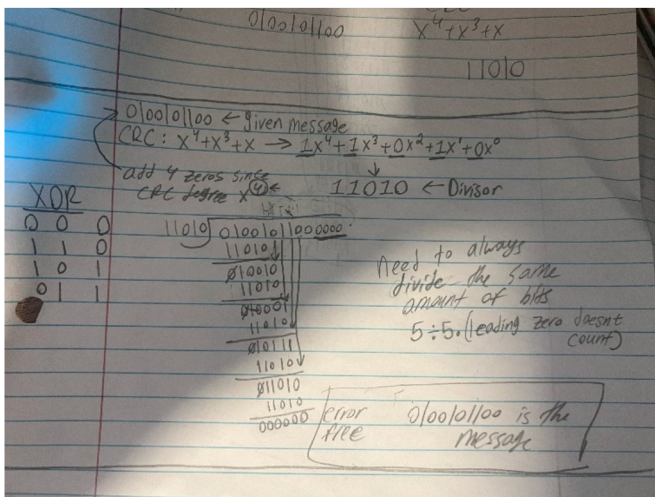 0100101100 x⁴+x³+x
11010
0100101100 ← given message
CRC: x⁴+x³+x → 1x⁴+1x³+0x²+1x¹+0x⁰
add 4 zeros since
CRC degree x⁴
11010 ← Divisor
XOR
0 0 0
1 1 0
1 0 1
0 1 1
11010 01001011000000
11010
010010
11010
010001
11010
010111
11010
011010
11010
000000
Need to always
divide the same
amount of bits
5÷5. (leading zero doesnt
count)
error
free
0100101100 is the
message